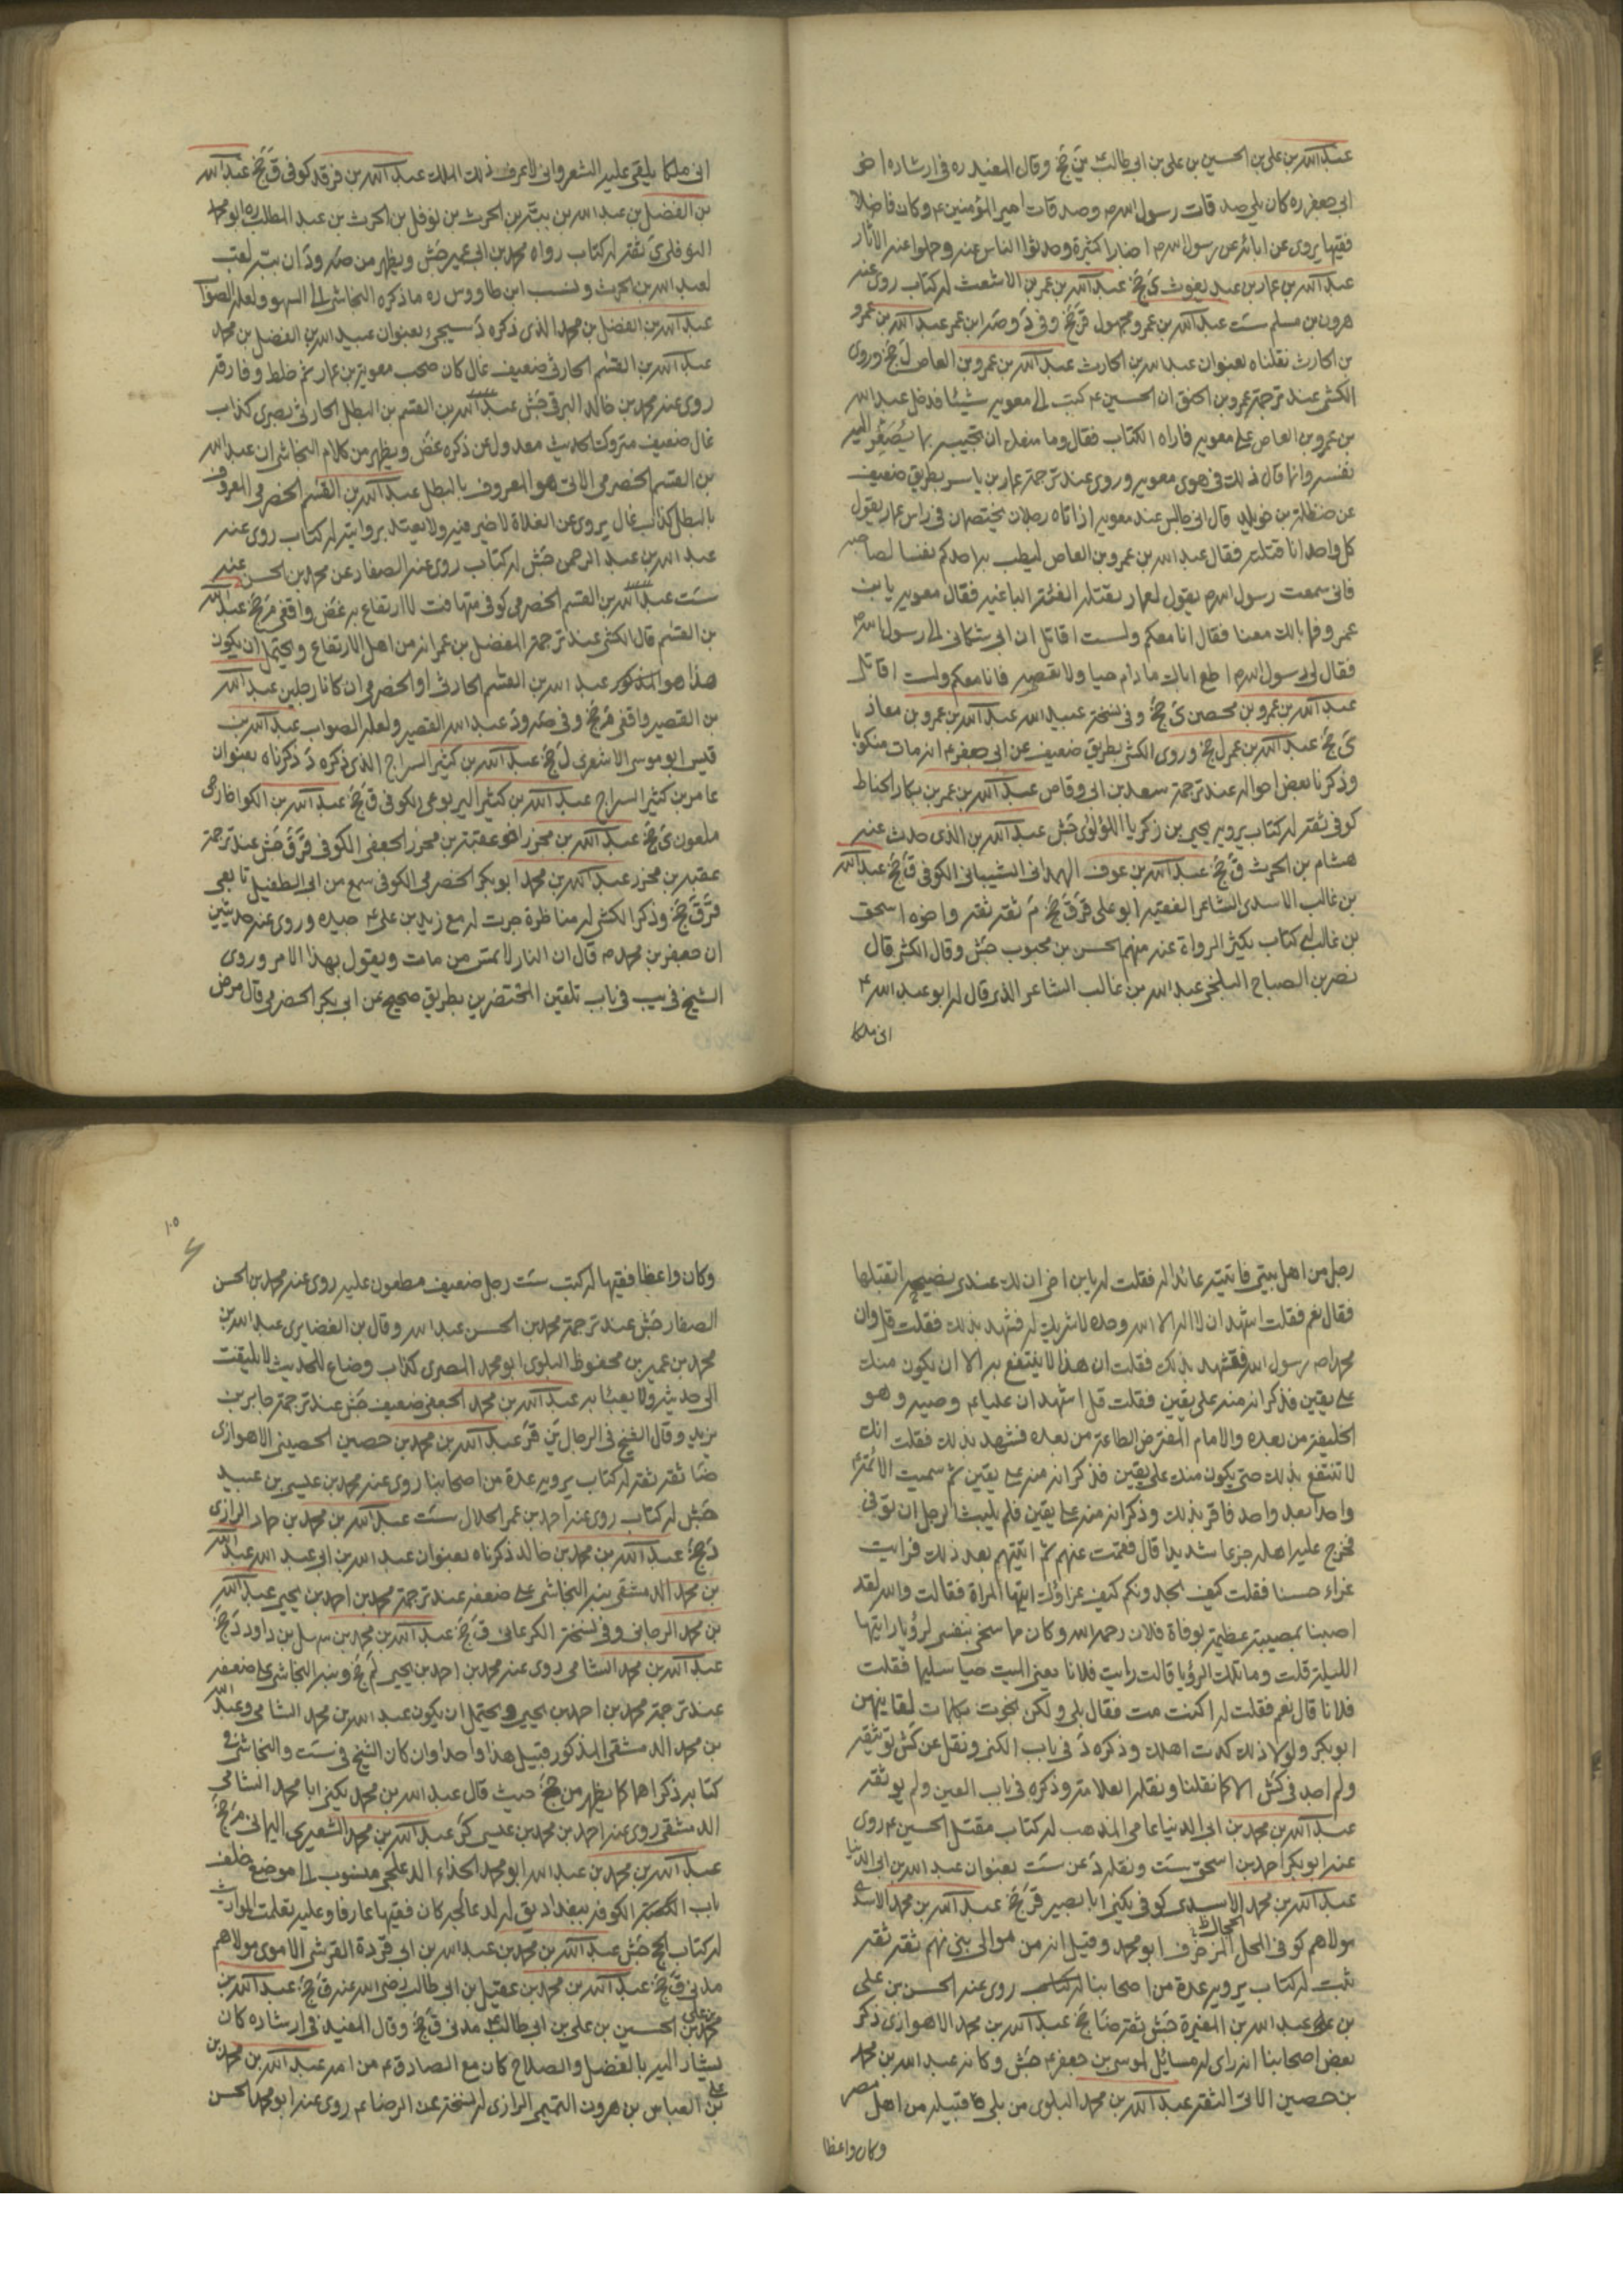 عبد الله بن علي بن الحسين بن علي بن ابي طالب ع ين جخ وقال المفيد ره في ارشاده اخو
ابي جعفر ره كان يلي صدقات رسول الله ص وصدقات امير المؤمنين ع وكان فاضلا
فقيها يروى عن ابائه عن رسول الله ص اخبارا كثيرة وحدثوا الناس عنه وحملوا عنه الاثار
عبد الله بن عمار بن عبد يغوث ى جخ عبد الله بن عمر بن الاشعث له كتاب روى عنه
هرون بن مسلم ست عبد الله بن عمرو مجهول قر جخ وفي د وصه ابن عمر عبد الله بن عمرو
بن الحارث نقلناه بعنوان عبد الله بن الحارث عبد الله بن عمرو بن العاص ل جخ وروى
الكشي عند ترجمة عمرو بن الحمق ان الحسين ع كتب الى معويه شيئا فدخل عبد الله
بن عمرو بن العاص على معويه فاراه الكتاب فقال وما منعك ان تجيبه بما يُصَغِّر اليه
نفسه وانما قال ذلك في هوى معويه وروى عند ترجمة عمار بن ياسر بطريق ضعيف
عن حنظلة بن خويلد قال اني جالس عند معويه اذ اتاه رجلان يختصمان في راس عمار يقول
كل واحد انا قتلته فقال عبد الله بن عمرو بن العاص ليطب به احدكم نفسا لصاحبه
فاني سمعت رسول الله ص يقول لعمار يقتله الفئة الباغية فقال معويه يا بن
عمرو فما بالك معنا فقال انا معكم ولست اقاتل ان ابي شكاني الى رسول الله ص
فقال لي رسول الله ص اطع اباك ما دام حيا ولا تعصه فانا معكم ولست اقاتل
عبد الله بن عمرو بن محصن ى جخ وفي نسخة عبيد الله عبد الله بن عمرو بن معاذ
ى جخ عبد الله بن عمر ل جخ وروى الكشي بطريق ضعيف عن ابي جعفر ع انه مات منكوبا
وذكرنا بعض احواله عند ترجمة سعد بن ابي وقاص عبد الله بن عمر بن بكار الحناط
كوفي ثقة له كتاب يرويه يحيى بن زكريا اللؤلؤى جش عبد الله بن الذى حدث عنه
هشام بن الحرث ق جخ عبد الله بن عوف الهمداني الشيباني الكوفي ق جخ عبد الله
بن غالب الاسدى الشاعر الفقيه ابو علي قر ق جخ م ثقة ثقة واخوه اسحق
بن غالب له كتاب يكثر الرواة عنه منهم الحسن بن محبوب جش وقال الكشي قال
نصر بن الصباح البلخي عبد الله بن غالب الشاعر الذى قال له ابو عبد الله ع
ان ملكا
ان ملكا يلقى عليه الشعر واني لاعرف ذلك الملك عبد الله بن فرقد كوفي ق جخ عبد الله
بن الفضل بن عبد الله بن ببه بن الحرث بن نوفل بن الحرث بن عبد المطلب ره ابو محمد
النوفلي ى ثقة له كتاب رواه محمد بن ابي عمير جش ويظهر من صه ود ان ببه لقب
لعبد الله بن الحرث ونسب ابن طاووس ره ما ذكره النجاشي الى السهو ولعله الصواب
عبد الله بن الفضل بن محمد الذى ذكره د سيجئ بعنوان عبيد الله بن الفضل بن محمد
عبد الله بن القسم الحارثي ضعيف غال كان صحب معوية بن عمار ثم خلط وفارقه
روى عنه محمد بن خالد البرقي جش عبد الله بن القسم بن البطل الحارثي بصرى كذاب
غال ضعيف متروك الحديث معدول عن ذكره غض ويظهر من كلام النجاشي ان عبد الله
بن القسم الحضرمي الاتي هو المعروف بالبطل عبد الله بن القسم الحضرمي المعروف
بالبطل كذاب غال يروى عن الغلاة لا خير فيه ولا يعتد بروايته له كتاب روى عنه
عبد الله بن عبد الرحمن جش له كتاب روى عنه الصفار عن محمد بن الحسين عنه
ست عبد الله بن القسم الحضرمي كوفي متهافت لا ارتفاع به غض واقفي م جخ عبد الله
بن القسم قال الكشي عند ترجمة المفضل بن عمر انه من اهل الارتفاع ويحتمل ان يكون
هذا هو المذكور عبد الله بن القسم الحارثي او الحضرمي ان كانا رجلين عبد الله
بن القصير واقفي م جخ وفي صه ود عبد الله القصير ولعله الصواب عبد الله بن
قيس ابو موسى الاشعرى ل جخ عبد الله بن كثير السراج الذى ذكره د ذكرناه بعنوان
عامر بن كثير السراج عبد الله بن كثير اليربوعي الكوفي ق جخ عبد الله بن الكوا خارجي
ملعون ى جخ عبد الله بن محرز اخو عقبة بن محرز الجعفي الكوفي قر ق جش عند ترجمة
عقبه بن محرز عبد الله بن محمد ابو بكر الحضرمي الكوفي سمع من ابي الطفيل تابعي
قر ق جخ وذكر الكشي له مناظرة جرت له مع زيد بن علي ع جيده وروى عنه حديثين
ان جعفر بن محمد ص قال ان النار لا تمس من مات ويقول بهذا الامر وروى
الشيخ في يب في باب تلقين المحتضرين بطريق صحيح عن ابي بكر الحضرمي قال مرض
رجل من اهل بيتي فاتيته عائدا له فقلت له يا بن اخي ان لك عندى نصيحة اتقبلها
فقال نعم فقلت اشهد ان لا اله الا الله وحده لا شريك له فشهد بذلك فقلت قل وان
محمدا ص رسول الله فشهد بذلك فقلت ان هذا لا ينتفع به الا ان يكون منك
على يقين فذكر انه منه على يقين فقلت قل اشهد ان عليا ع وصيه وهو
الخليفة من بعده والامام المفترض الطاعة من بعده فشهد بذلك فقلت انك
لا تنتفع بذلك حتى يكون منك على يقين فذكر انه منه على يقين ثم سميت الائمة ع
واحدا بعد واحد فاقر بذلك وذكر انه منه على يقين فلم يلبث الرجل ان توفي
فجزع عليه اهله جزعا شديدا قال فغبت عنهم ثم اتيتهم بعد ذلك فرايت
عزاء حسنا فقلت كيف تجدونكم كيف عزاؤك ايتها المراة فقالت والله لقد
اصبنا بمصيبة عظيمة بوفاة فلان رحمه الله وكان مما سخي بنفسي لرؤيا رايتها
الليلة قلت وما تلك الرؤيا قالت رايت فلانا يعني الميت حيا سليما فقلت
فلانا قال نعم فقلت له اكنت مت فقال بلى ولكن نجوت بكلمات لقانيهن
ابو بكر ولولا ذلك كدت اهلك وذكره د في باب الكنى ونقل عن كش توثيقه
ولم اجد في كش الا كما نقلنا ونقله العلامة وذكره في باب العين ولم يوثقه
عبد الله بن محمد بن ابي الدنيا عامي المذهب له كتاب مقتل الحسين ع روى
عنه ابو بكر احمد بن اسحق ست ونقله د عن ست بعنوان عبد الله بن ابي الدنيا
عبد الله بن محمد الاسدى كوفي يكنى ابا بصير قر جخ عبد الله بن محمد الاسدى
مولاهم كوفي الحجال المزخرف ابو محمد وقيل انه من موالي بني نهم ثقة ثقة
ثبت له كتاب يرويه عدة من اصحابنا له كتاب روى عنه الحسن بن علي
بن عبد الله بن المغيرة جش ثقة ضا جخ عبد الله بن محمد الاهوازى ذكر
بعض اصحابنا انه راى له مسائل لموسى بن جعفر ع جش وكانه عبد الله بن محمد
بن حصين الاتي الثقة عبد الله بن محمد البلوى من بلي قبيلة من اهل مصر
وكان واعظا
١٠٥
وكان واعظا فقيها له كتب ست رجل ضعيف مطعون عليه روى عنه محمد بن الحسن
الصفار جش عند ترجمة محمد بن الحسن عبد الله وقال بن الغضايرى عبد الله بن
محمد بن عمير بن محفوظ البلوى ابو محمد المصرى كذاب وضاع للحديث لا يلتفت
الى حديثه ولا يعبئا به عبد الله بن محمد الجعفي ضعيف جش عند ترجمة جابر بن
يزيد وقال الشيخ في الرجال ين قر عبد الله بن محمد بن حصين الحصيني الاهوازى
ضا ثقة ثقة له كتاب يرويه عدة من اصحابنا روى عنه محمد بن عيسى بن عبيد
جش له كتاب روى عنه احمد بن عمر الحلال ست عبد الله بن محمد بن حماد الرازى
د جخ عبد الله بن محمد بن خالد ذكرناه بعنوان عبد الله بن ابي عبد الله عبد الله
بن محمد الدمشقي نبه النجاشي على ضعفه عند ترجمة محمد بن احمد بن يحيى عبد الله
بن محمد الرجاني وفي نسخة الكرعاني ق جخ عبد الله بن محمد بن سهل بن داود د جخ
عبد الله بن محمد الشامي روى عنه محمد بن احمد بن يحيى لم جخ ونبه النجاشي على ضعفه
عند ترجمة محمد بن احمد بن يحيى ويحتمل ان يكون عبد الله بن محمد الشامي وعبد الله
بن محمد الدمشقي المذكور قبيل هذا واحدا وان كان الشيخ في ست والنجاشي في
كتابه ذكراهما كما يظهر من جخ حيث قال عبد الله بن محمد يكنى ابا محمد الشامي
الدمشقي روى عنه احمد بن محمد بن عيسى كر عبد الله بن محمد الشعيرى اليماني م جخ
عبد الله بن محمد بن عبد الله ابو محمد الحذاء الدعلجي منسوب الى موضع خلف
باب الكوفه ببغداد يق له الدعالجه كان فقيها عارفا وعليه تعلمت المواريث
له كتاب الحج جش عبد الله بن محمد بن عبد الله بن ابي قردة القرشي الاموى مولاهم
مدني ق جخ عبد الله بن محمد بن عقيل بن ابي طالب رضي الله عنه ق جخ عبد الله بن
محمد بن علي بن الحسين بن علي بن ابي طالب ع مدني ق جخ وقال المفيد في ارشاده كان
يشار اليه بالفضل والصلاح كان مع الصادق ع من امه عبد الله بن محمد بن
علي بن العباس بن هرون التميمي الرازى له نسخة عن الرضا ع روى عنه ابو محمد الحسن